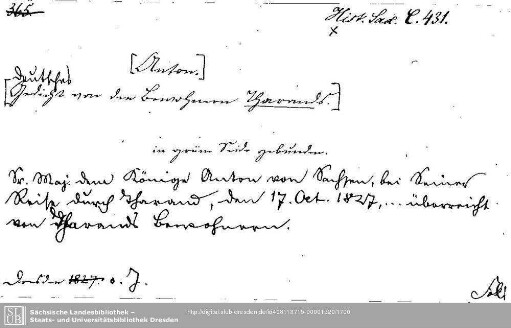 365.
Hist. Sax. C. 431.
x
[Anton.]
Deutsches
[Gedicht von den Bewohnern Tharands.]
in grüne Seide gebunden.
Sr. Maj. dem Könige Anton von Sachsen, bei Seiner
Reise durch Tharand, den 17. Oct. 1827, ... überreicht
von Tharands Bewohnern.
Dresden 1827. o. J.
Sächsische Landesbibliothek –
Staats- und Universitätsbibliothek Dresden